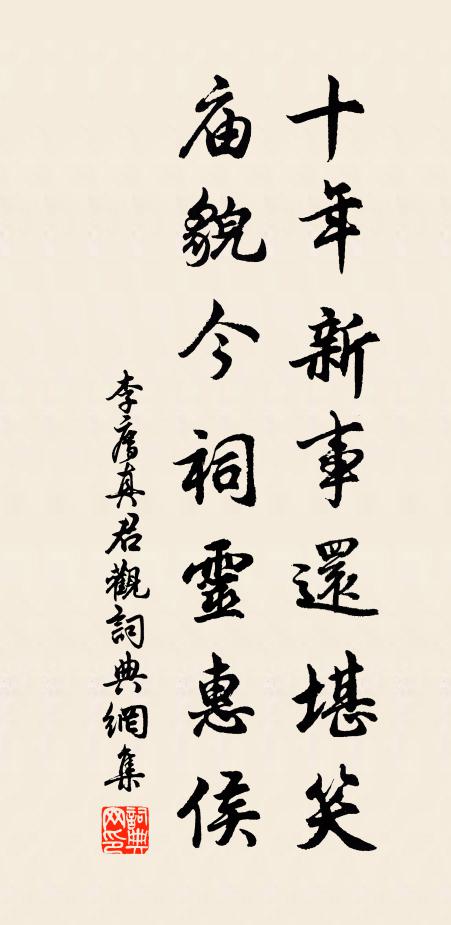 十年新事還堪笑
庙貌今祠靈惠侯
李廌真君觀詞典網集
詞典網印